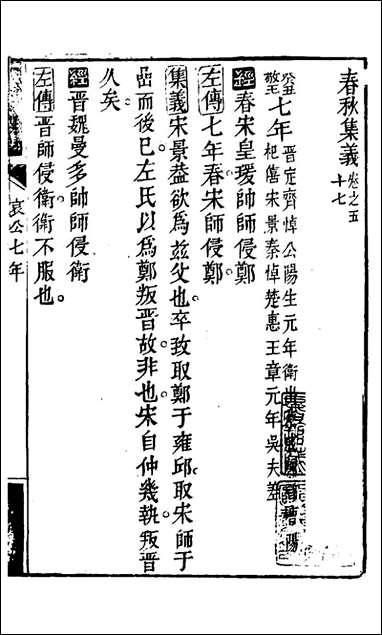 春秋集義卷之五十七
癸丑七年晉定齊悼公陽生元年衛出
杞僖宋景秦悼楚惠王章元年吳夫差
經春宋皇瑗帥師侵鄭
左傳七年春宋師侵鄭
集義宋景益欲為茲父也卒致取鄭于雍邱取宋師于
嵒而後已左氏以為鄭叛晉故非也宋自仲幾執叛晉
久矣
經晉魏曼多帥師侵衛
左傳晉師侵衛衛不服也
哀公七年